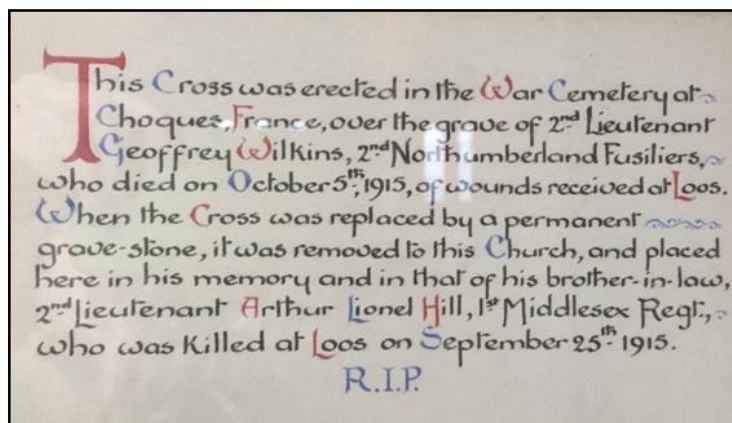 This Cross was erected in the War Cemetery at
Choques, France, over the grave of 2nd Lieutenant
Geoffrey Wilkins, 2nd Northumberland Fusiliers,
who died on October 5th, 1915, of wounds received at Loos.
When the Cross was replaced by a permanent
grave-stone, it was removed to this Church, and placed
here in his memory and in that of his brother-in-law,
2nd Lieutenant Arthur Lionel Hill, 1st Middlesex Regt.,
who was killed at Loos on September 25th 1915.
R.I.P.